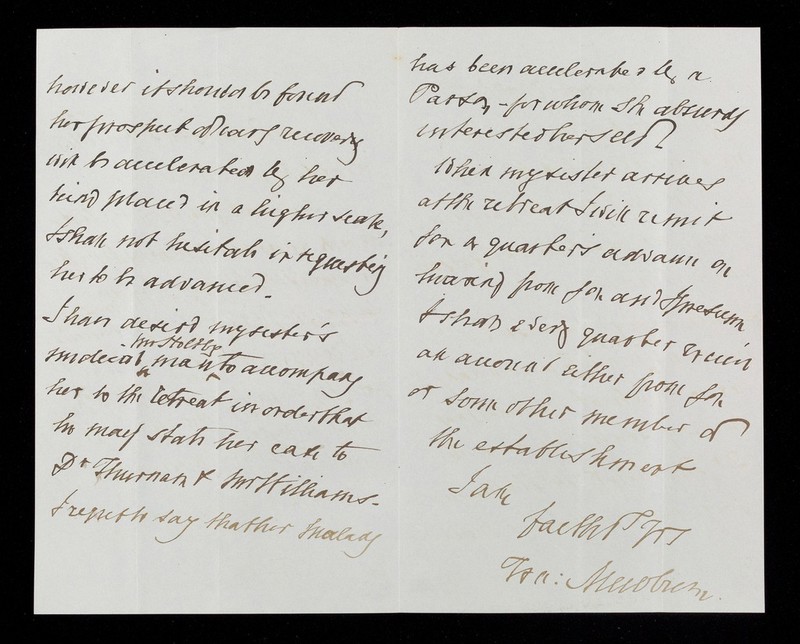 however it should be found
her prospect of early recovery
will be accelerated by her
being placed in a higher scale,
I shall not hesitate in requesting
her to be advanced.
I have desired my sister's
medical man to accompany
her to the Retreat in order that
he may state her case to
Dr Thurnam & Mr Williams -
I regret to say that her malady
has been accelerated by a
Parson, - for whom she absurdly
interested herself
When my sister arrives
at the retreat I will remit
for a quarter's advance on
hearing from you and I presume
I shall every quarter receive
an account either from you
or some other member of
the establishment
I am
faithfy Yrs